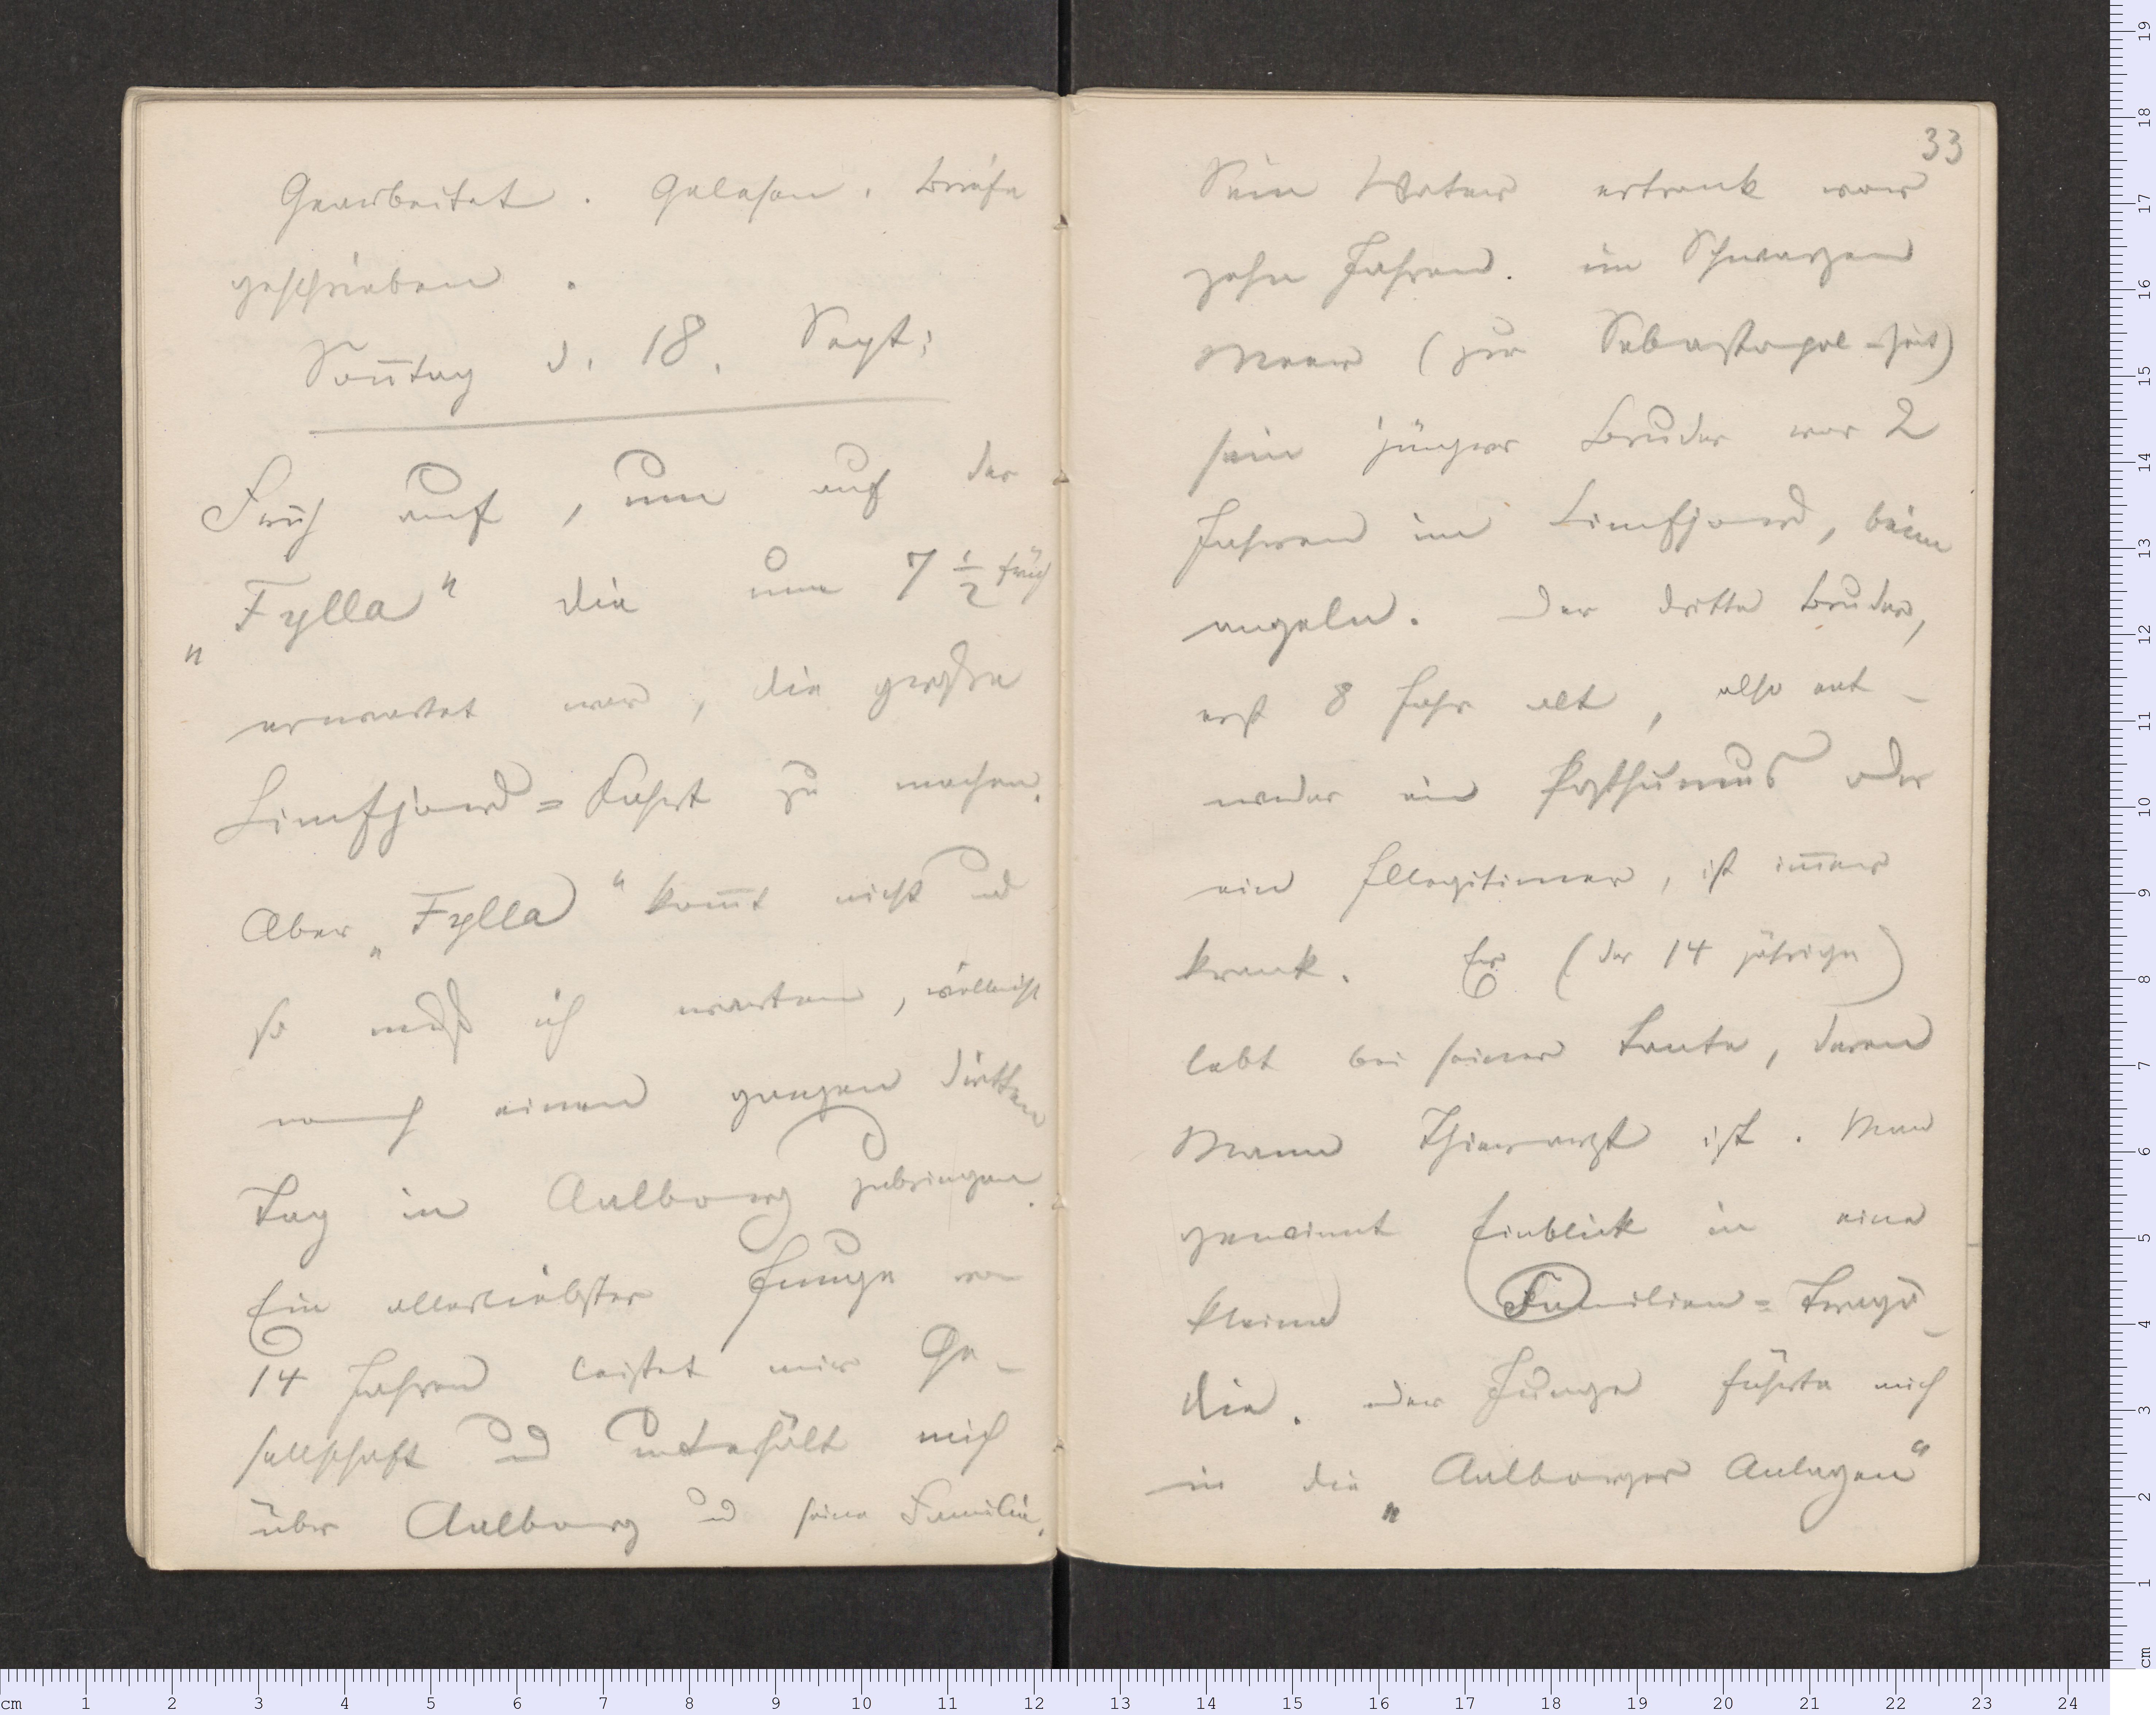 Gearbeitet. Gelesen. Briefe
geschrieben.
Son̄tag d. 18. Sept:
Früh auf, um auf der
„Fylla“ die um 7 ½ früh
erwartet war, die große
Limfjord=Fahrt zu machen.
Aber „Fylla“ kom̄t nicht und
so muß ich warten, vielleicht
noch einen ganzen dritten
Tag in Aalborg zubringen.
Ein allerliebster Junge von
14 Jahren leistet mir Ge-
sellschaft und unterhält mich
über Aalborg und seine Familie.
33
Sein Vater ertrank vor
zehn Jahren. im Schwarzen
Meer (zur Sebastopol-Zeit)
sein jüngrer Bruder vor 2
Jahren im Limfjord, beim
angeln. Der dritte Bruder,
erst 8 Jahr alt, also ent-
weder ein Posthumus oder
ein Illegitimer, ist im̄er
krank. Er (der 14 jährige)
lebt bei seiner Tante, deren
Mann Thierarzt ist. Man
gewinnt Einblick in eine
kleine Familien=Tragö-
die. Der Junge führte mich
in die „Aalborger Anlagen“